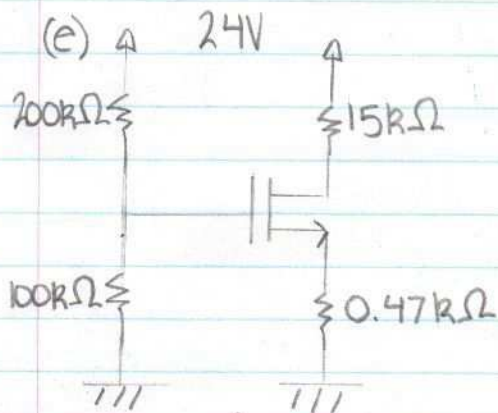 (e) 24V
200kΩ 15kΩ
100kΩ 0.47kΩ